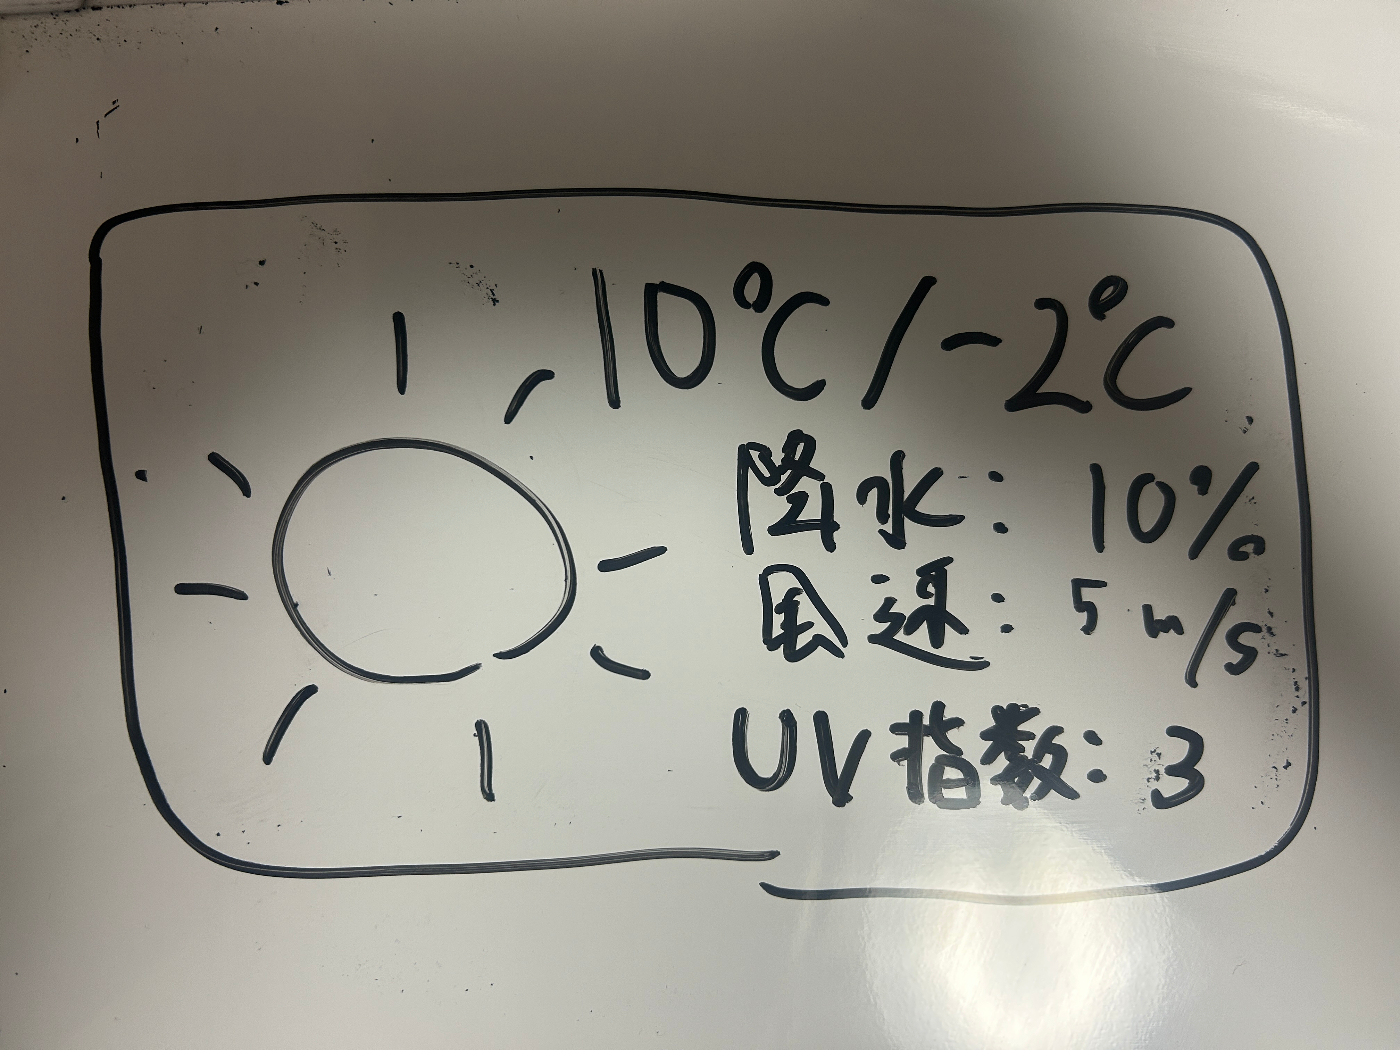 10°C/-2°C
降水: 10%
风速: 5m/s
UV指数: 3